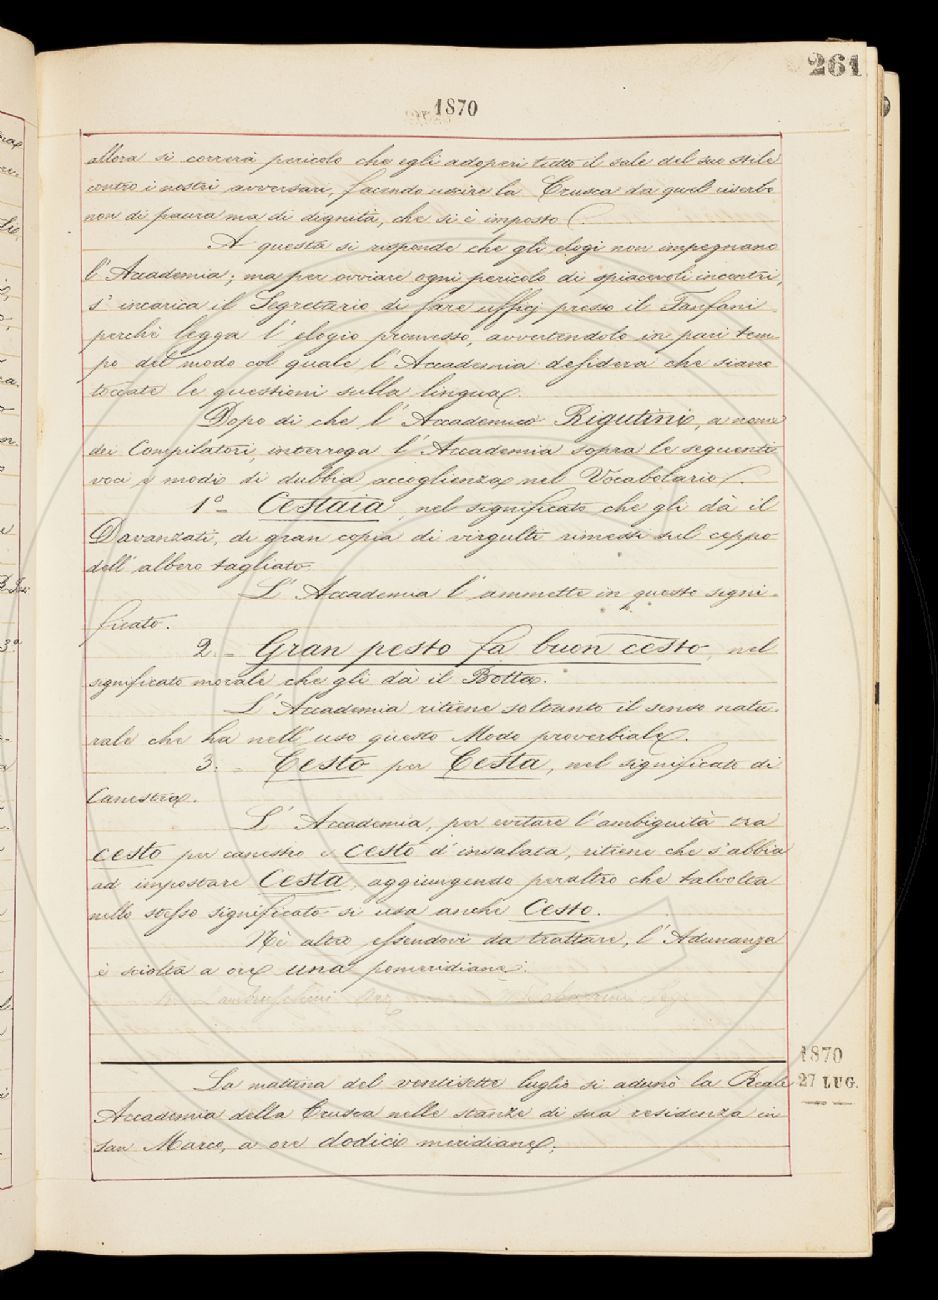 261
1870
allora si correrà pericolo che egli adoperi tutto il sale del suo stile
contro i nostri avversari, facendo uscire la Crusca da quel riserbo
non di paura ma di dignità, che si è imposto.
A questa si risponde che gli elogi non impegnano
l'Accademia; ma per ovviare ogni pericolo di spiacevoli incontri,
s'incarica il Segretario di fare ufficj presso il Fanfani
perchè legga l'elogio promesso, avvertendolo in pari tem-
po del modo col quale l'Accademia desidera che siano
toccate le questioni sulla lingua.
Dopo di che l'Accademico Rigutini, a nome
dei Compilatori, interroga l'Accademia sopra le seguenti
voci e modi di dubbia accoglienza nel Vocabolario.
1º- Cestaia, nel significato che gli dà il
Davanzati, di gran copia di virgulti rimessi sul ceppo
dell'albero tagliato.
L'Accademia l'ammette in questo signi-
ficato.
2.- Gran pesto fa buon cesto, nel
significato morale che gli dà il Botta.
L'Accademia ritiene soltanto il senso natu-
rale che ha nell'uso questo Modo proverbiale.
3.- Cesto per Cesta, nel significato di
Canestra.
L'Accademia, per evitare l'ambiguità tra
cesto per canestro e cesto d'insalata, ritiene che s'abbia
ad impostare Cesta, aggiungendo peraltro che talvolta
nello stesso significato si usa anche Cesto.
Nè altro essendovi da trattare, l'Adunanza
è sciolta a ore una pomeridiane.
Lambruschini Arc
1870
27 LUG.
La mattina del ventisette luglio si adunò la Reale
Accademia della Crusca nelle stanze di sua residenza in
San Marco, a ore dodici meridiane;